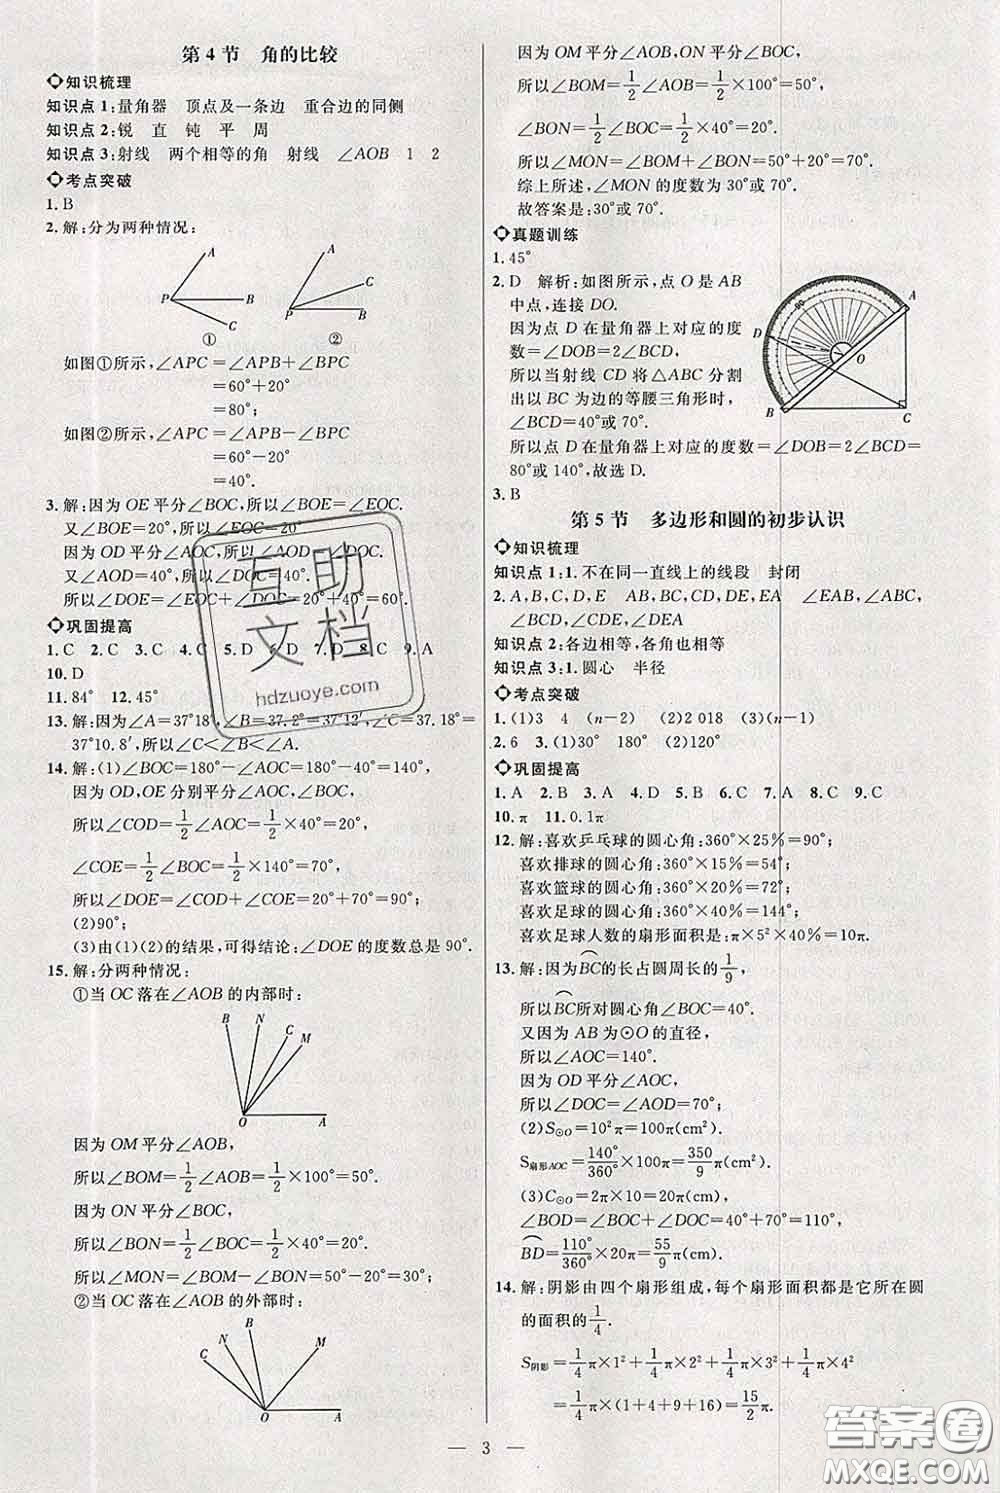 第4节　角的比较
知识梳理
知识点1:量角器　顶点及一条边　重合边的同侧
知识点2:锐　直　钝　平　周
知识点3:射线　两个相等的角　射线　∠AOB　1　2
考点突破
1.B
2.解:分为两种情况:
A
P
B
C
①
A
C
P
B
②
如图①所示,∠APC=∠APB+∠BPC
=60°+20°
=80°;
如图②所示,∠APC=∠APB-∠BPC
=60°-20°
=40°.
3.解:因为OE平分∠BOC,所以∠BOE=∠EOC.
又∠BOE=20°,所以∠EOC=20°.
因为OD平分∠AOC,所以∠AOD=∠DOC.
又∠AOD=40°,所以∠DOC=40°.
所以∠DOE=∠EOC+∠DOC=20°+40°=60°.
巩固提高
1.C　2.C　3.C　4.C　5.D　6.D　7.D　8.C　9.A
10.D
11.84°　12.45°
13.解:因为∠A=37°18′,∠B=37.2°=37°12′,∠C=37.18°=
37°10.8′,所以∠C<∠B<∠A.
14.解:(1)∠BOC=180°-∠AOC=180°-40°=140°,
因为OD,OE分别平分∠AOC,∠BOC,
所以∠COD=1/2∠AOC=1/2×40°=20°,
∠COE=1/2∠BOC=1/2×140°=70°,
所以∠DOE=∠COD+∠COE=20°+70°=90°;
(2)90°;
(3)由(1)(2)的结果,可得结论:∠DOE的度数总是90°.
15.解:分两种情况:
①当OC落在∠AOB的内部时:
B
N
C
M
O
A
因为OM平分∠AOB,
所以∠BOM=1/2∠AOB=1/2×100°=50°.
因为ON平分∠BOC,
所以∠BON=1/2∠BOC=1/2×40°=20°.
所以∠MON=∠BOM-∠BON=50°-20°=30°.
②当OC落在∠AOB的外部时:
C
N
B
M
O
A
因为OM平分∠AOB,ON平分∠BOC,
所以∠BOM=1/2∠AOB=1/2×100°=50°,
∠BON=1/2∠BOC=1/2×40°=20°.
所以∠MON=∠BOM+∠BON=50°+20°=70°.
综上所述,∠MON的度数为30°或70°.
故答案是:30°或70°.
真题训练
1.45°
2.D　解析:如图所示,点O是AB
中点,连接DO.
因为点D在量角器上对应的度
数=∠DOB=2∠BCD,
所以当射线CD将△ABC分割
出以BC为边的等腰三角形时,
∠BCD=40°或70°.
所以点D在量角器上对应的度数=∠DOB=2∠BCD=
80°或140°,故选D.
A
D
90
O
B
C
3.B
第5节　多边形和圆的初步认识
知识梳理
知识点1:1.不在同一直线上的线段　封闭
2.A,B,C,D,E　AB,BC,CD,DE,EA　∠EAB,∠ABC,
∠BCD,∠CDE,∠DEA
知识点2:各边相等,各角也相等
知识点3:1.圆心　半径
考点突破
1.(1)3　4　(n-2)　(2)2 018　(3)(n-1)
2.6　3.(1)30°　180°　(2)120°
巩固提高
1.A　2.B　3.A　4.D　5.C　6.C　7.A　8.C　9.C
10.π　11.0.1π
12.解:喜欢乒乓球的圆心角:360°×25%=90°;
喜欢排球的圆心角:360°×15%=54°;
喜欢篮球的圆心角:360°×20%=72°;
喜欢足球的圆心角:360°×40%=144°;
喜欢足球人数的扇形面积是:π×5²×40%=10π.
13.解:因为⌒BC的长占圆周长的1/9,
所以⌒BC所对圆心角∠BOC=40°.
又因为AB为⊙O的直径,
所以∠AOC=140°.
因为OD平分∠AOC,
所以∠DOC=∠AOD=70°;
(2)S⊙O=10²π=100π(cm²).
S扇形AOC=140°/360°×100π=350/9π(cm²).
(3)C⊙O=2π×10=20π(cm),
∠BOD=∠BOC+∠DOC=40°+70°=110°,
⌒BD=110°/360°×20π=55/9π(cm).
14.解:阴影由四个扇形组成,每个扇形面积都是它所在圆
的面积的1/4.
S阴影=1/4π×1²+1/4π×2²+1/4π×3²+1/4π×4²
=1/4π×(1+4+9+16)=15/2π.
— 3 —
互助
文档
hdzuoye.com
答案圈
MXQE.COM